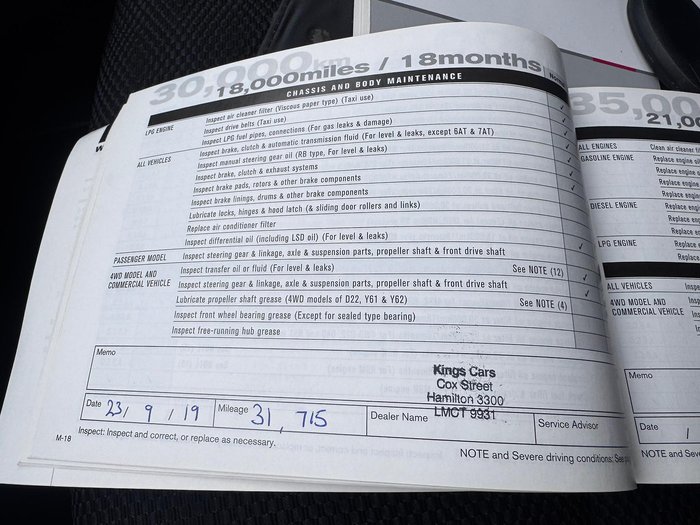 30,000km
18,000miles / 18months
CHASSIS AND BODY MAINTENANCE
LPG ENGINE
Inspect air cleaner filter (Viscous paper type) (Taxi use)
Inspect drive belts (Taxi use)
Inspect LPG fuel pipes, connections (For gas leaks & damage)
ALL VEHICLES
Inspect brake, clutch & automatic transmission fluid (For level & leaks, except 6AT & 7AT)
Inspect manual steering gear oil (RB type, For level & leaks)
Inspect brake, clutch & exhaust systems
Inspect brake pads, rotors & other brake components
Inspect brake linings, drums & other brake components
Lubricate locks, hinges & hood latch (& sliding door rollers and links)
Replace air conditioner filter
Inspect differential oil (including LSD oil) (For level & leaks)
PASSENGER MODEL
Inspect steering gear & linkage, axle & suspension parts, propeller shaft & front drive shaft
4WD MODEL AND COMMERCIAL VEHICLE
Inspect transfer oil or fluid (For level & leaks) See NOTE (12)
Inspect steering gear & linkage, axle & suspension parts, propeller shaft & front drive shaft
Lubricate propeller shaft grease (4WD models of D22, Y61 & Y62) See NOTE (4)
Inspect front wheel bearing grease (Except for sealed type bearing)
Inspect free-running hub grease
Memo
Kings Cars
Cox Street
Hamilton 3300
LMCT 9931
Date 23 / 9 / 19 Mileage 31, 715 Dealer Name Service Advisor
M-18 Inspect: Inspect and correct, or replace as necessary.
NOTE and Severe driving conditions: See
35,00
21,00
ALL ENGINES Clean air cleaner fi
GASOLINE ENGINE Replace engine
Replace engine o
Replace engi
Replace engi
DIESEL ENGINE Replace eng
Replace eng
Replace
LPG ENGINE Replace
Replace
ALL VEHICLES Insp
4WD MODEL AND COMMERCIAL VEHICLE Insp
Memo
Date /
NOTE and Seve